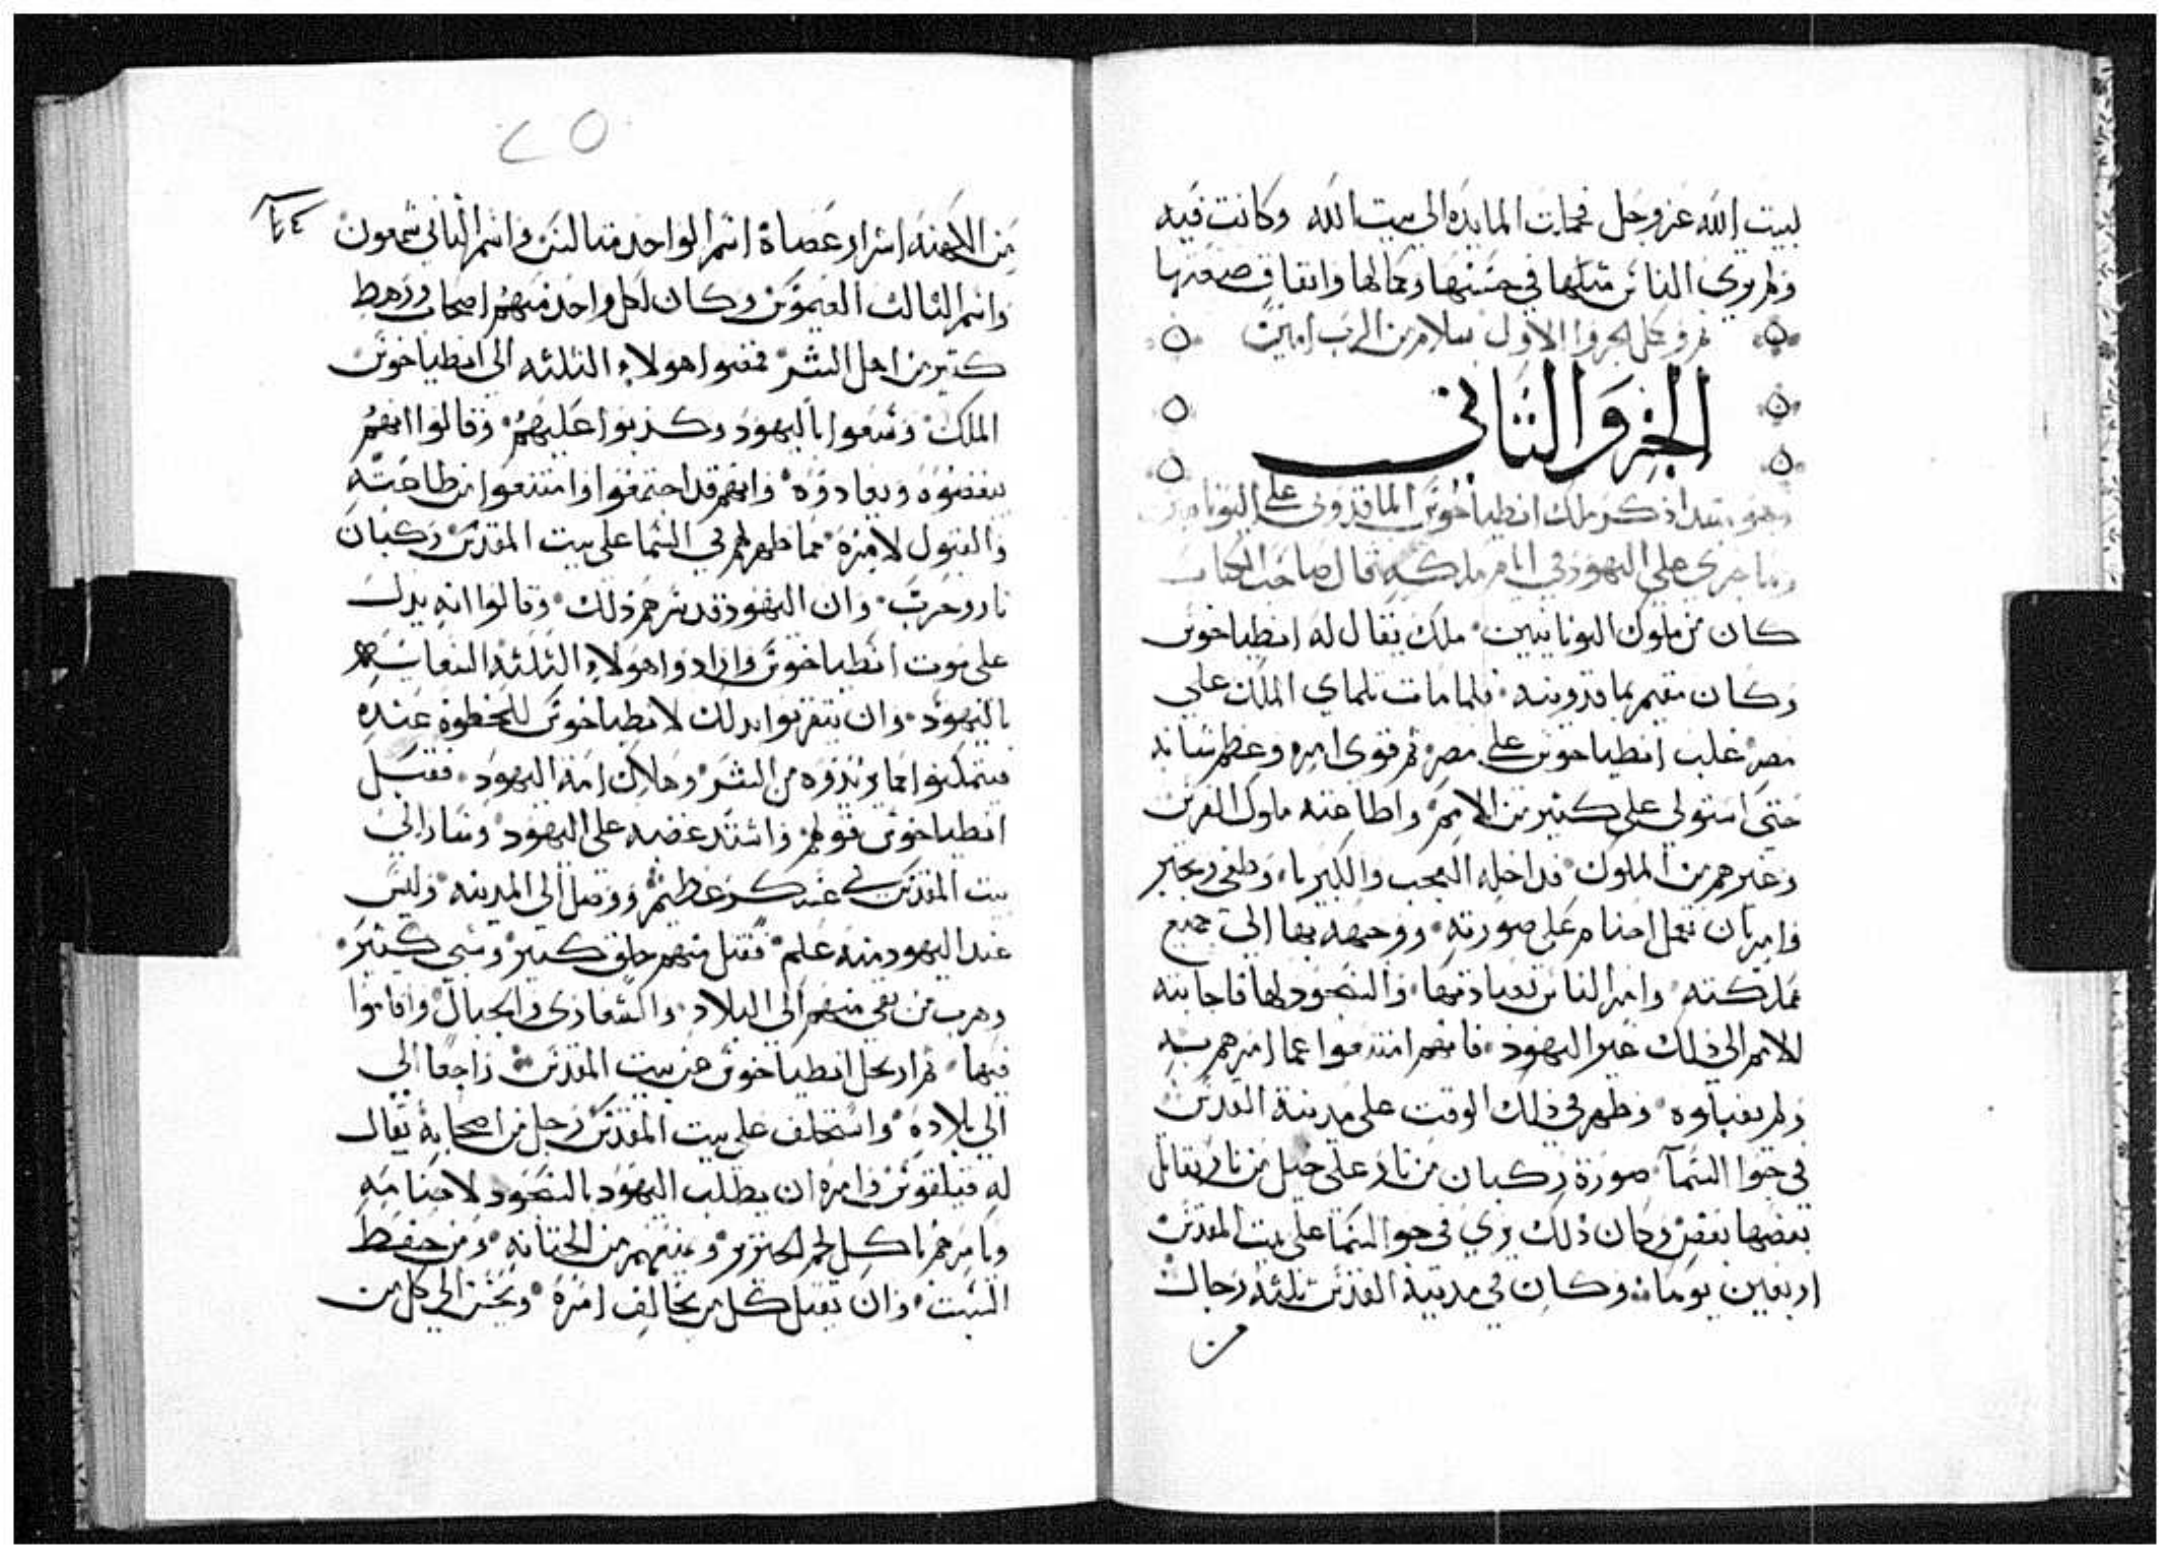 لبيت الله عز وجل فحملت المايده الى بيت الله وكانت فيه
ولم يرى الناس مثلها في حسنها وجمالها واتقان صنعتها
تم وكمل الجزوا الاول بسلام من الرب امين
الجزو الثاني
وهو يبتدا ذكر ملك انطياخوس الماقدوني على اليونانيين
وما جرى على اليهود في ايام مملكته قال صاحب الكتاب
كان من ملوك اليونانيين ملك يقال له انطياخوس
وكان مقيم بماقدونيه فلما مات تلماي الملك علي
مصر غلب انطياخوس على مصر ثم قوي امره وعظم شانه
حتى استولى على كثير من الامم واطاعته ملوك الفرس
وغيرهم من الملوك فداخله العجب والكبريا وطغى وتجبر
وامر بان تعمل اصنام على صورته ووجهه بها الى جميع
مملكته وامر الناس بعبادتها والسجود لها فاجابته
الامم الى ذلك غير اليهود فانهم امتنعوا عما امرهم به
ولم يقبلوه وظهر في ذلك الوقت على مدينة القدس
في جوا السمآ صورة ركبان من نار على خيل من نار يقاتل
بعضها بعض وكان ذلك يري في جوا السما على بيت المقدس
اربعين يوما وكان في مدينة القدس ثلثة رجال
من
٢٥
من الكهنه اشرار عصاة اسم الواحد منالس واسم الثاني شمعون
واسم الثالث القيموس وكان لكل واحد منهم اصحاب ورهط
كثير من اهل الشر فمضوا هولاء الثلثه الى انطياخوس
الملك وسعوا باليهود وكذبوا عليهم وقالوا انهم
يبغضوه ويعادوه وانهم قد اجتمعوا وامتنعوا من طاعته
والقبول لامره مما ظهر لهم في السما على بيت المقدس ركبان
نار وحرب وان اليهود قد سرهم ذلك وقالوا انه يدل
على موت انطياخوس وارادوا هولاء الثلثة السعايه
باليهود وان يتقربوا بذلك لانطياخوس للحظوة عنده
فيتمكنوا مما يريدوه من الشر وهلاك امة اليهود فقبل
انطياخوس قولهم واشتد غضبه على اليهود وسار الى
بيت المقدس في عسكر عظيم ووصل الى المدينه وليس
عند اليهود منه علم فقتل منهم خلق كثير وسبى كثير
وهرب من بقي منهم الى البلاد والشعاري والجبال واقاموا
فيها ثم ارتحل انطياخوس عن بيت المقدس راجعا الى
الى بلاده واستخلف على بيت المقدس رجل من اصحابه يقال
له فيلقوس وامره ان يطلب اليهود بالسجود لاصنامه
ويامرهم باكل لحم الخنزير ويمنعهم من الختانه ومن حفظ
السبت وان يقتل كل من يخالف امره ويحسن الى كل من